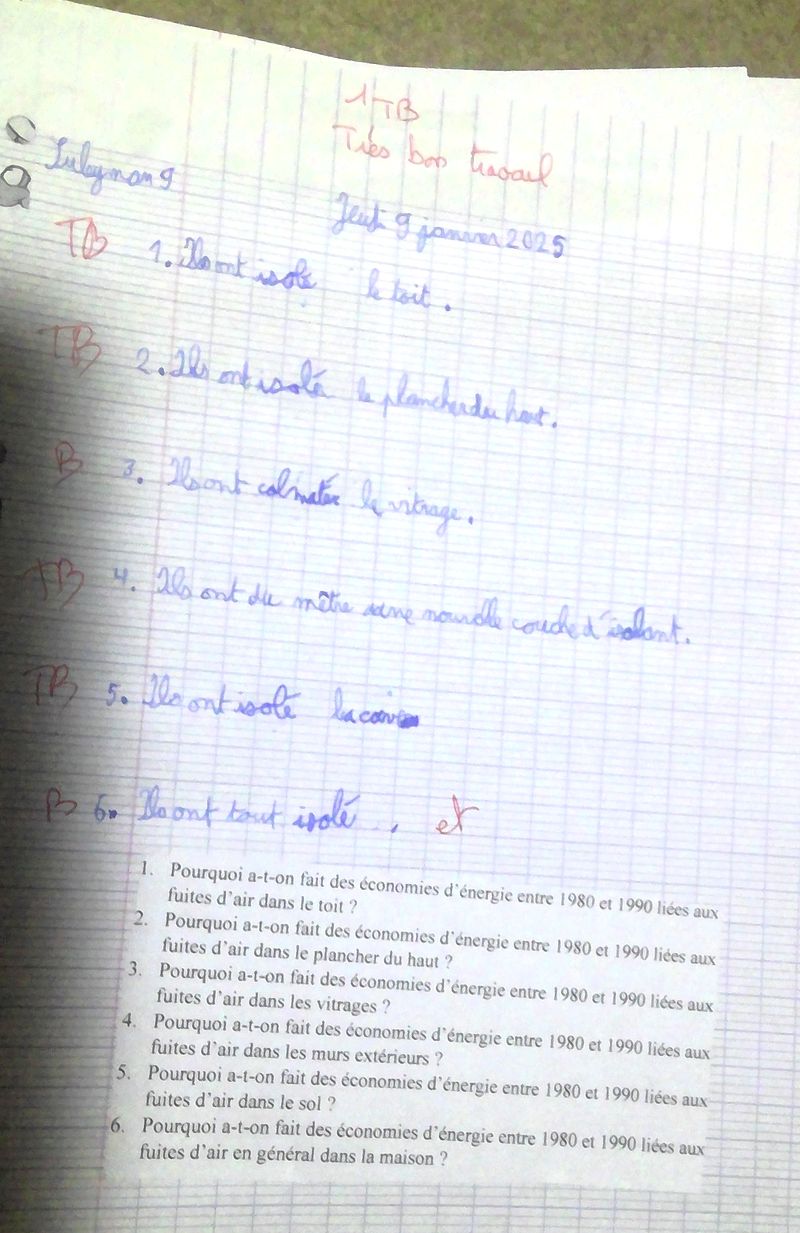 1TB
Très bon travail
Suleyman 9
Jeudi 9 janvier 2025
TB 1. Ils ont isolé le toit.
TB 2. Ils ont isolé le plancher du haut.
B 3. Ils ont colmater le vitrage.
TB 4. Ils ont du mêtre une nouvelle couche d'isolant.
TB 5. Ils ont isolé la cave
B 6. Ils ont tout isolé. et
1. Pourquoi a-t-on fait des économies d'énergie entre 1980 et 1990 liées aux
fuites d'air dans le toit ?
2. Pourquoi a-t-on fait des économies d'énergie entre 1980 et 1990 liées aux
fuites d'air dans le plancher du haut ?
3. Pourquoi a-t-on fait des économies d'énergie entre 1980 et 1990 liées aux
fuites d'air dans les vitrages ?
4. Pourquoi a-t-on fait des économies d'énergie entre 1980 et 1990 liées aux
fuites d'air dans les murs extérieurs ?
5. Pourquoi a-t-on fait des économies d'énergie entre 1980 et 1990 liées aux
fuites d'air dans le sol ?
6. Pourquoi a-t-on fait des économies d'énergie entre 1980 et 1990 liées aux
fuites d'air en général dans la maison ?